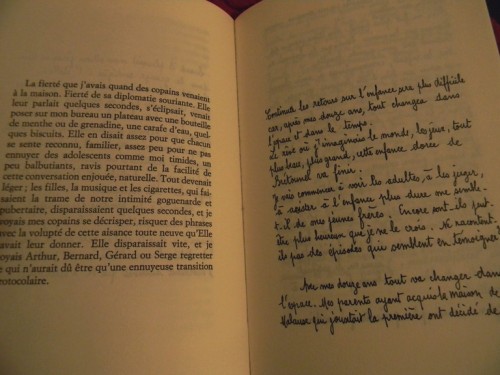 La fierté que j'avais quand des copains venaient
à la maison. Fierté de sa diplomatie souriante. Elle
leur parlait quelques secondes, s'éclipsait, venait
poser sur mon bureau un plateau avec une bouteille
de menthe ou de grenadine, une carafe d'eau, quel-
ques biscuits. Elle en disait assez pour que chacun
se sente reconnu, familier, assez peu pour ne pas
ennuyer des adolescents comme moi timides, un
peu balbutiants, ravis pourtant de la facilité de
cette conversation enjouée, naturelle. Tout devenait
léger ; les filles, la musique et les cigarettes, qui fai-
saient la trame de notre intimité goguenarde et
pubertaire, disparaissaient quelques secondes, et je
voyais mes copains se décrisper, risquer des phrases
avec la volupté de cette aisance toute neuve qu'Elle
avait leur donner. Elle disparaissait vite, et je
oyais Arthur, Bernard, Gérard ou Serge regretter
ce qui n'aurait dû être qu'une ennuyeuse transition
rotocolaire.
Continua les retours sur l'enfance plus difficile
car, après mes douze ans, tout changea dans
l'espace et dans le temps.
Le rêve où j'imaginais le monde, les jeux, tout
plus beau, plus grand, cette enfance dorée de
va finir.
Je vais commencer à voir les adultes, à les juger,
à assister à l'enfance plus dure me semble-
t-il de mes jeunes frères. Encore sont-ils peut-
être plus heureux que je ne le crois. Ne racontent-
ils pas des épisodes qui semblent en témoigner?
Avec mes douze ans tout va changer dans
l'espace. Mes parents ayant acquis la maison de
qui jouxtait la première ont décidé de